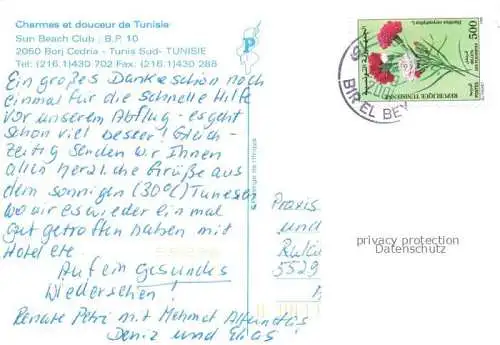 Charmes et douceur de Tunisie
Sun Beach Club . B.P. 10
2050 Borj Cedria - Tunis Sud- TUNISIE
Tel: (216.1)430 702 Fax: (216.1)430 288
Ein großes Dankeschön noch
einmal für die schnelle Hilfe
vor unserem Abflug - es geht
schon viel besser! Gleich-
zeitig senden wir Ihnen
allen herzliche Grüße aus
dem sonnigen (30°C) Tunesien
wo wir es wieder einmal
gut getroffen haben mit
Hotel etc.
Auf ein gesundes
Wiedersehen!
Renate Petri mit Mehmet
Deniz und Elias
P
Praxis
und
5529
500
REPUBLIQUE TUNISIENNE
BIR EL BEY
privacy protection
Datenschutz